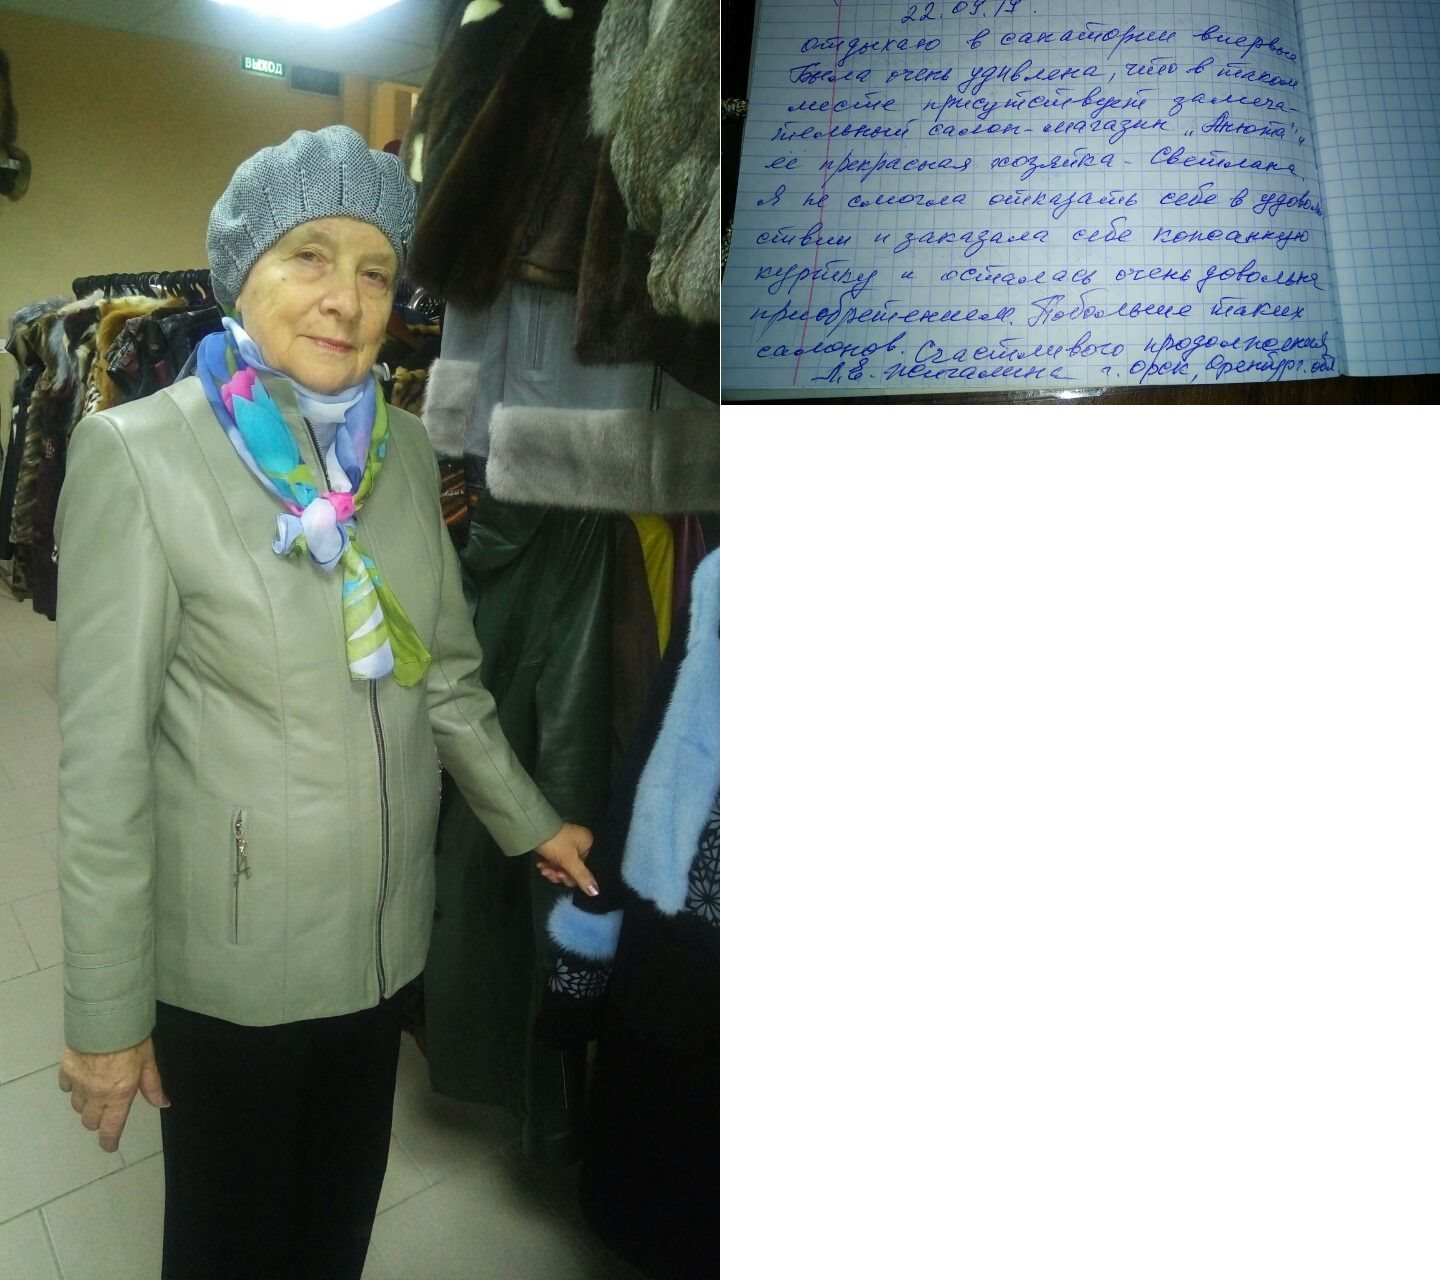 ВЫХОД
22.09.17.
отдыхаю в санатории впервые
Была очень удивлена, что в таком
месте присутствует замеча-
тельный салон-магазин „Анюта" и
её прекрасная хозяйка - Светлана.
Я не смогла отказать себе в удоволь
ствии и заказала себе кожанную
куртку и осталась очень довольна
приобретением. Побольше таких
салонов. Счастливого продолжения
г. Орск, Оренбург. обл